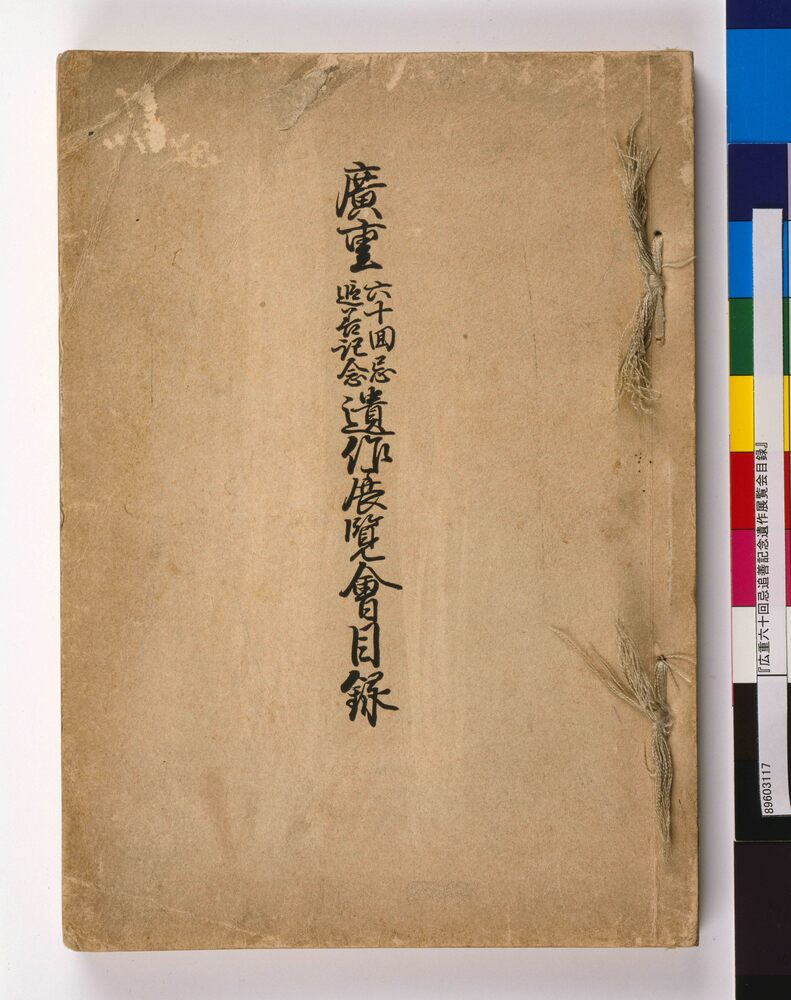 廣重
六十回忌
追善記念
遺作展覽會目録
『広重六十回忌追善記念遺作展覧会目録』
89603117